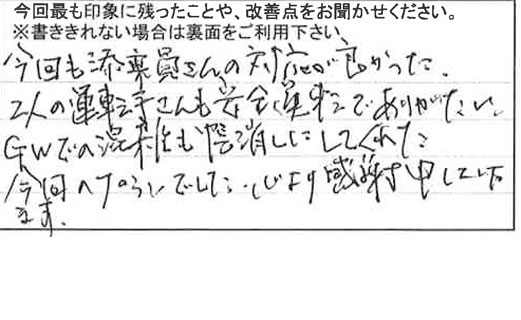 今回最も印象に残ったことや、改善点をお聞かせください。
※書ききれない場合は裏面をご利用下さい。
今回も添乗員さんの対応が良かった。
2人の運転手さんも安全運転でありがたい。
GWでの混雑も帳消しにしてくれた
今回のプランでした。心より感謝申してい
ます。